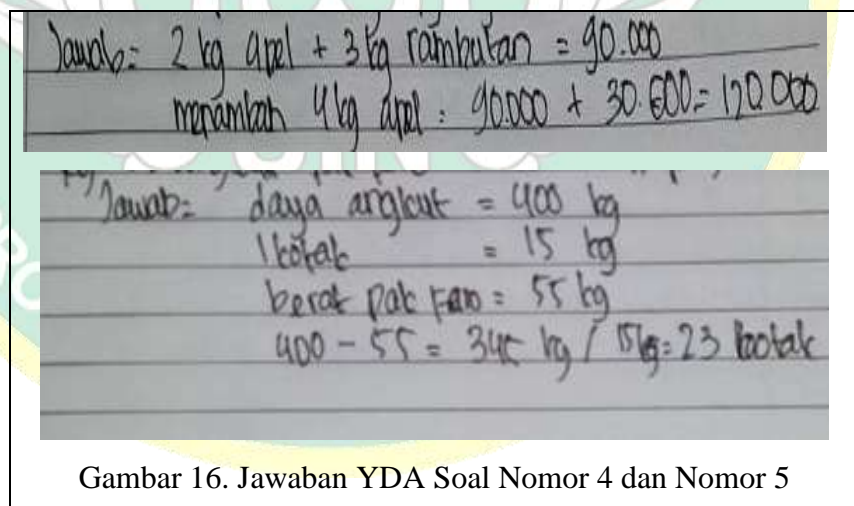 Jawab: 2 kg apel + 3 kg rambutan = 90.000
menambah 4 kg apel : 90.000 + 30.000 = 120.000
Jawab: daya angkut = 400 kg
1 kotak = 15 kg
berat pak = 55 kg
400 - 55 = 345 kg / 15 kg = 23 kotak
Gambar 16. Jawaban YDA Soal Nomor 4 dan Nomor 5